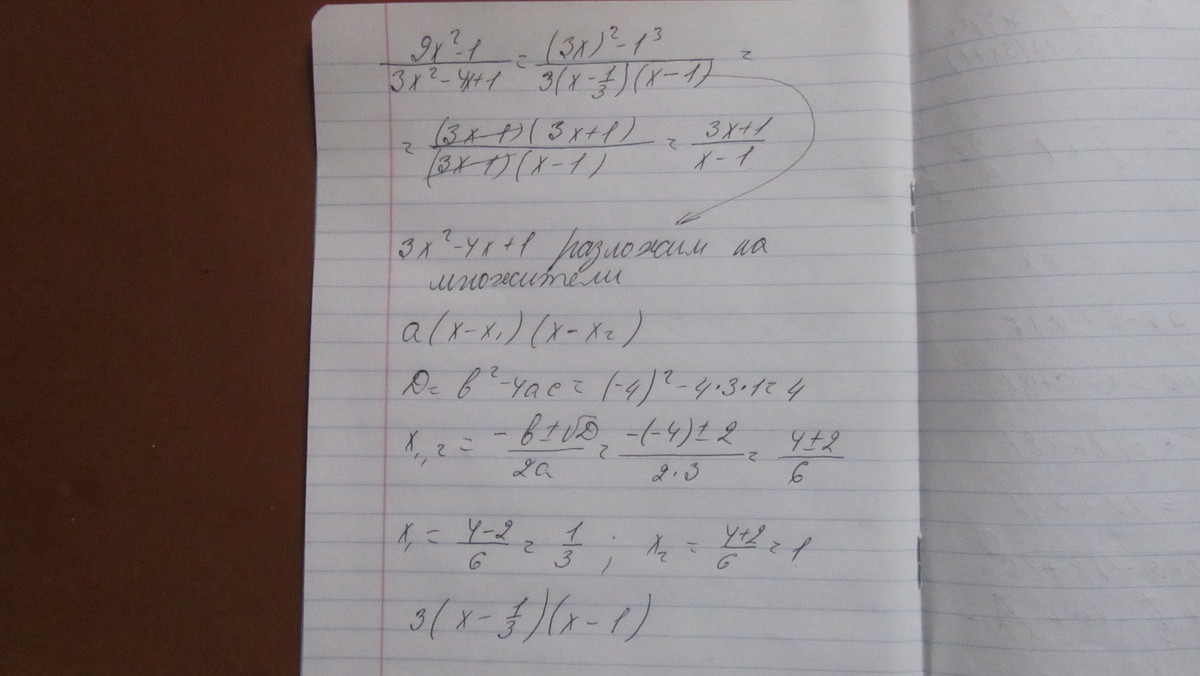 (9x²-1)/(3x²-4x+1) = ((3x)²-1³)/(3(x-1/3)(x-1)) =
= ((3x-1)(3x+1))/((3x-1)(x-1)) = (3x+1)/(x-1)
3x²-4x+1 разложим на
множители
a(x-x₁)(x-x₂)
D= в²-4ac = (-4)²-4·3·1=4
x₁,₂ = (-в±√D)/(2a) = (-(-4)±2)/(2·3) = (4±2)/6
x₁ = (4-2)/6 = 1/3 ; x₂ = (4+2)/6 = 1
3(x-1/3)(x-1)